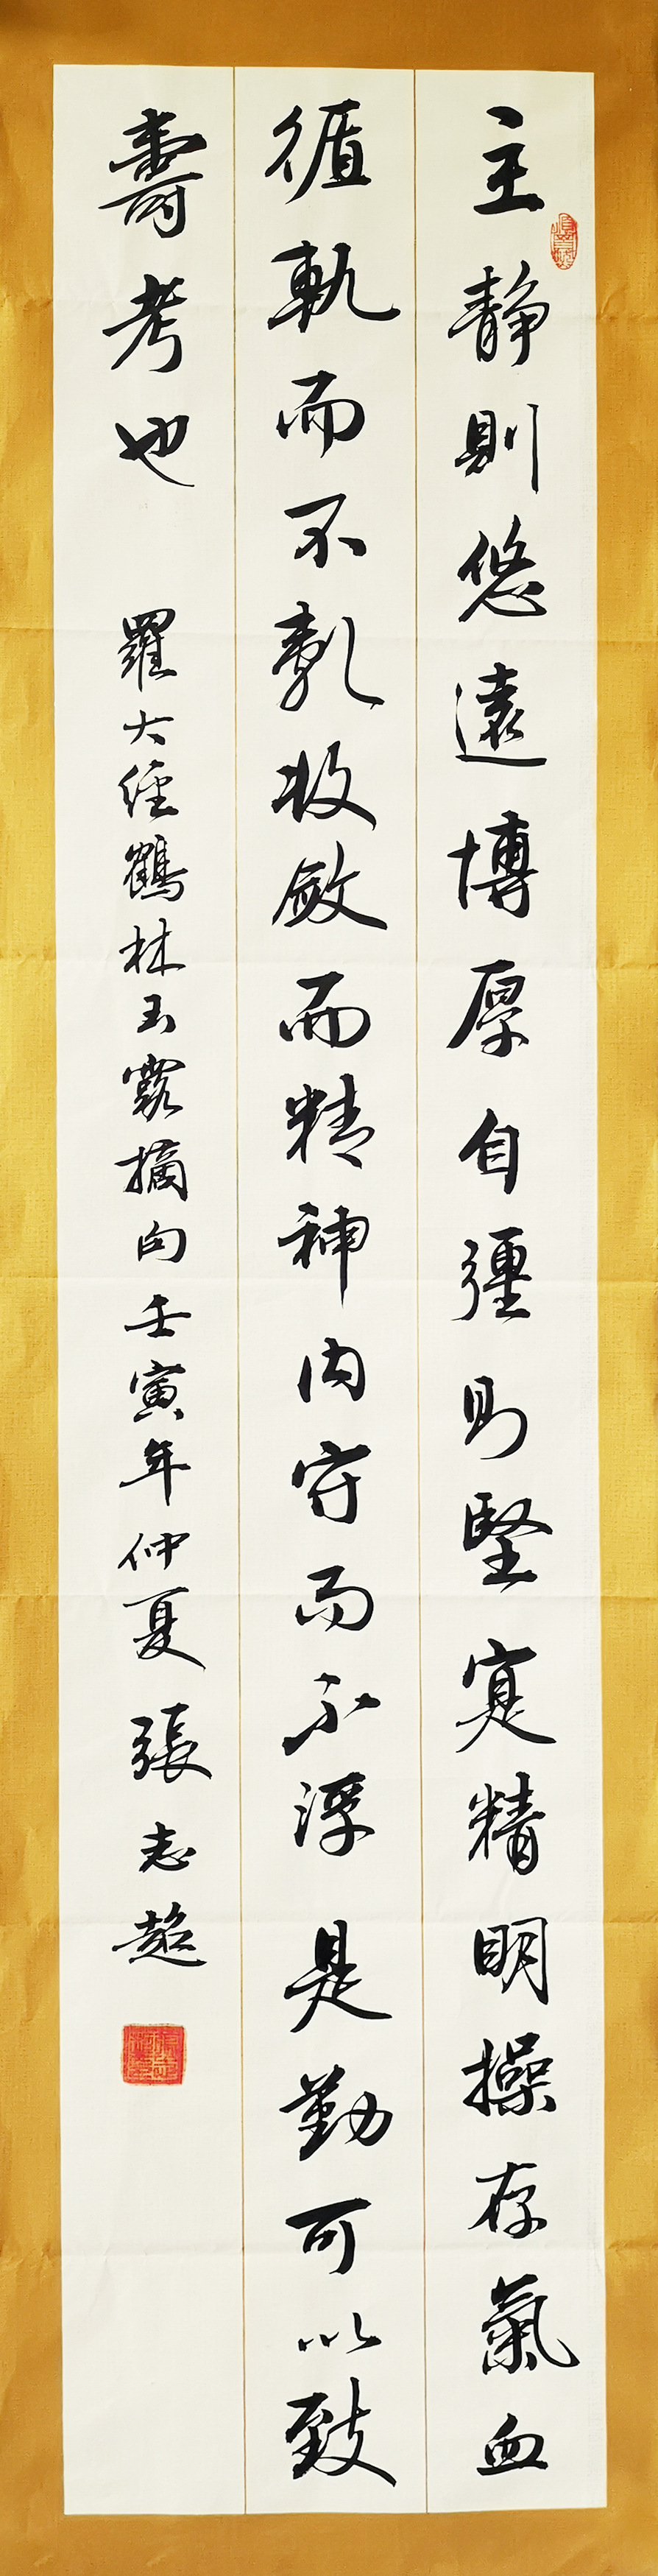 主静則悠遠博厚自彊則堅實精明操存氣血
循軌而不亂收斂而精神内守而不浮是勤可以致
壽考也
羅大經鶴林玉露摘句壬寅年仲夏張志超